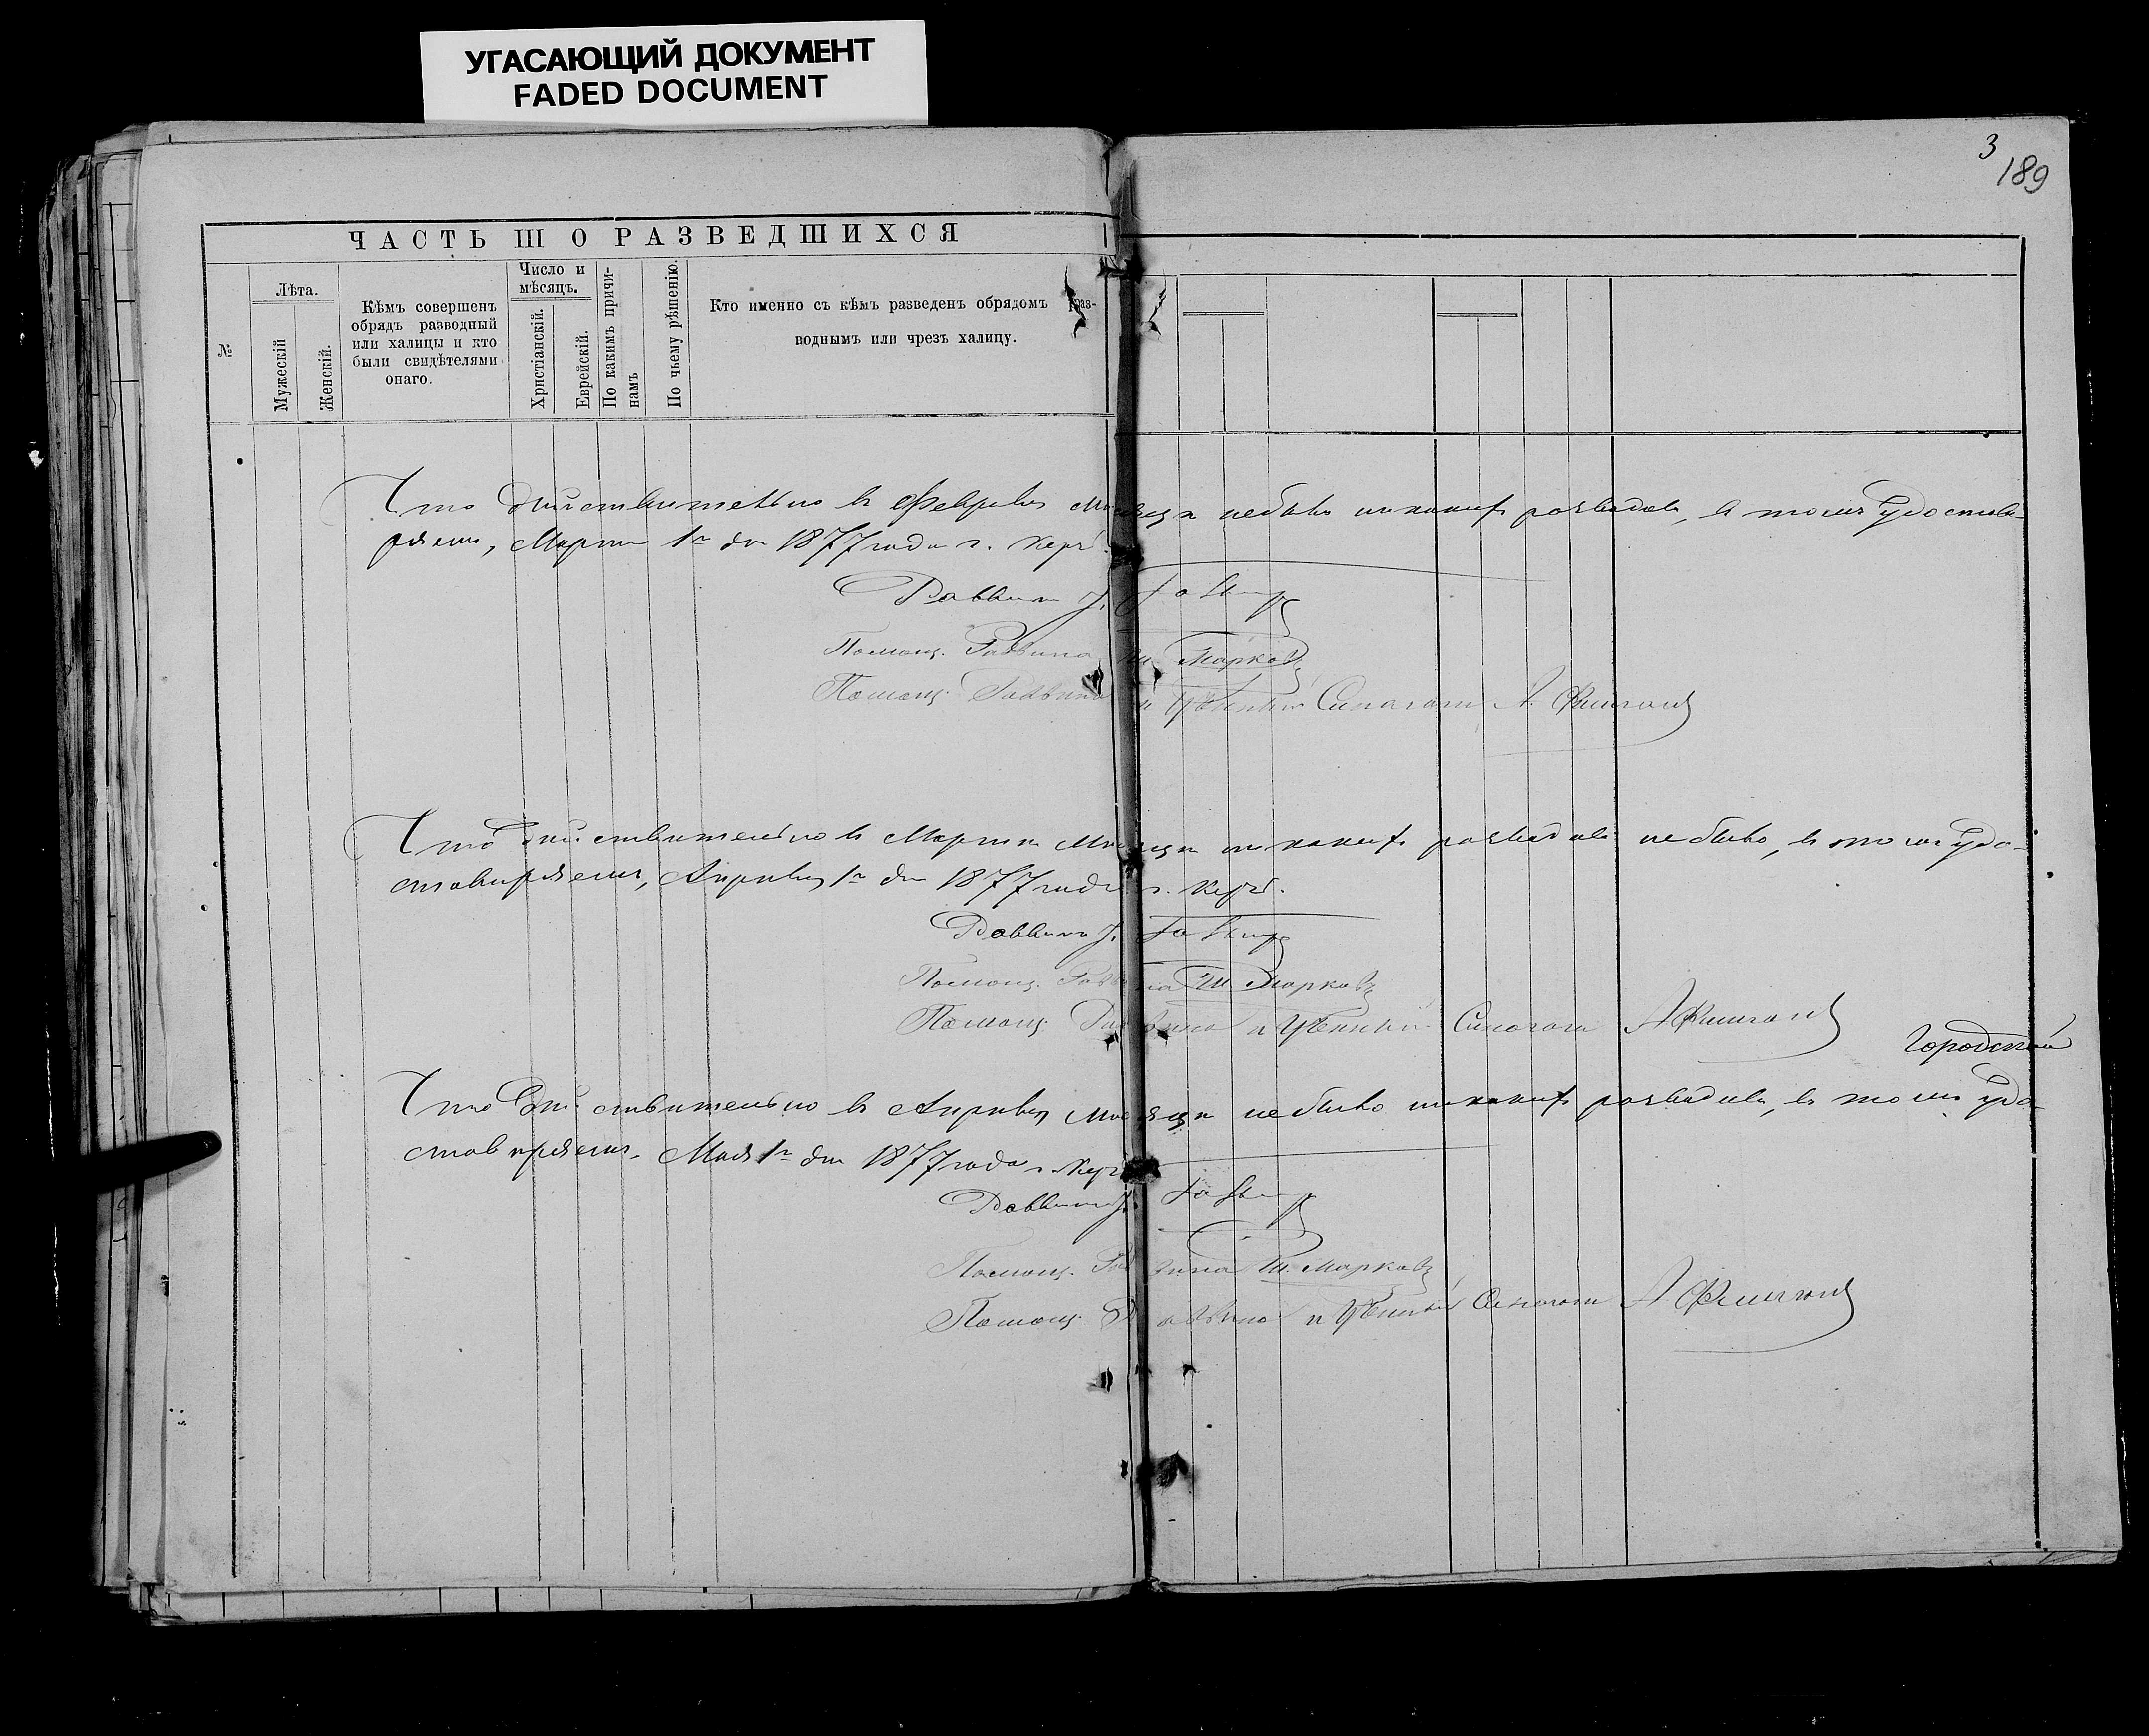 УГАСАЮЩИЙ ДОКУМЕНТ
FADED DOCUMENT
3
189
ЧАСТЬ III О РАЗВЕДШИХСЯ
№
Лѣта.
Мужескій
Женскій.
Кѣмъ совершенъ
обрядъ разводный
или халицы и кто
были свидѣтелями
онаго.
Число и
мѣсяцъ.
Христіанскій.
Еврейскій.
По какимъ причи-
намъ
По чьему рѣшенію.
Кто именно съ кѣмъ разведенъ обрядомъ раз-
воднымъ или чрезъ халицу.
Что дѣйствительно въ Февралѣ мѣсяцѣ небыло никакихъ разводовъ, въ томъ удостовѣ-
ряемъ, Марта 1го дня 1877 года г. Керчь.
Раввинъ
Помощ. Раввина Ш Марковъ
Помощ. Раввина и Учёный Синагоги А.
Что дѣйствительно въ Мартѣ мѣсяцѣ никакихъ разводовъ небыло, въ томъ удо-
стовѣряемъ, Апрѣля 1го дня 1877 года г. Керчь.
Раввинъ
Помощ. Раввина Ш Марковъ
Помощ. Раввина и Синагоги А
Городской
Что дѣйствительно въ Апрѣлѣ мѣсяцѣ небыло никакихъ разводовъ, въ томъ удо-
стовѣряемъ. Мая 1го дня 1877 года г. Керчь
Раввинъ
Помощ. Раввина Ш. Марковъ
Помощ. Раввина и Синагоги А